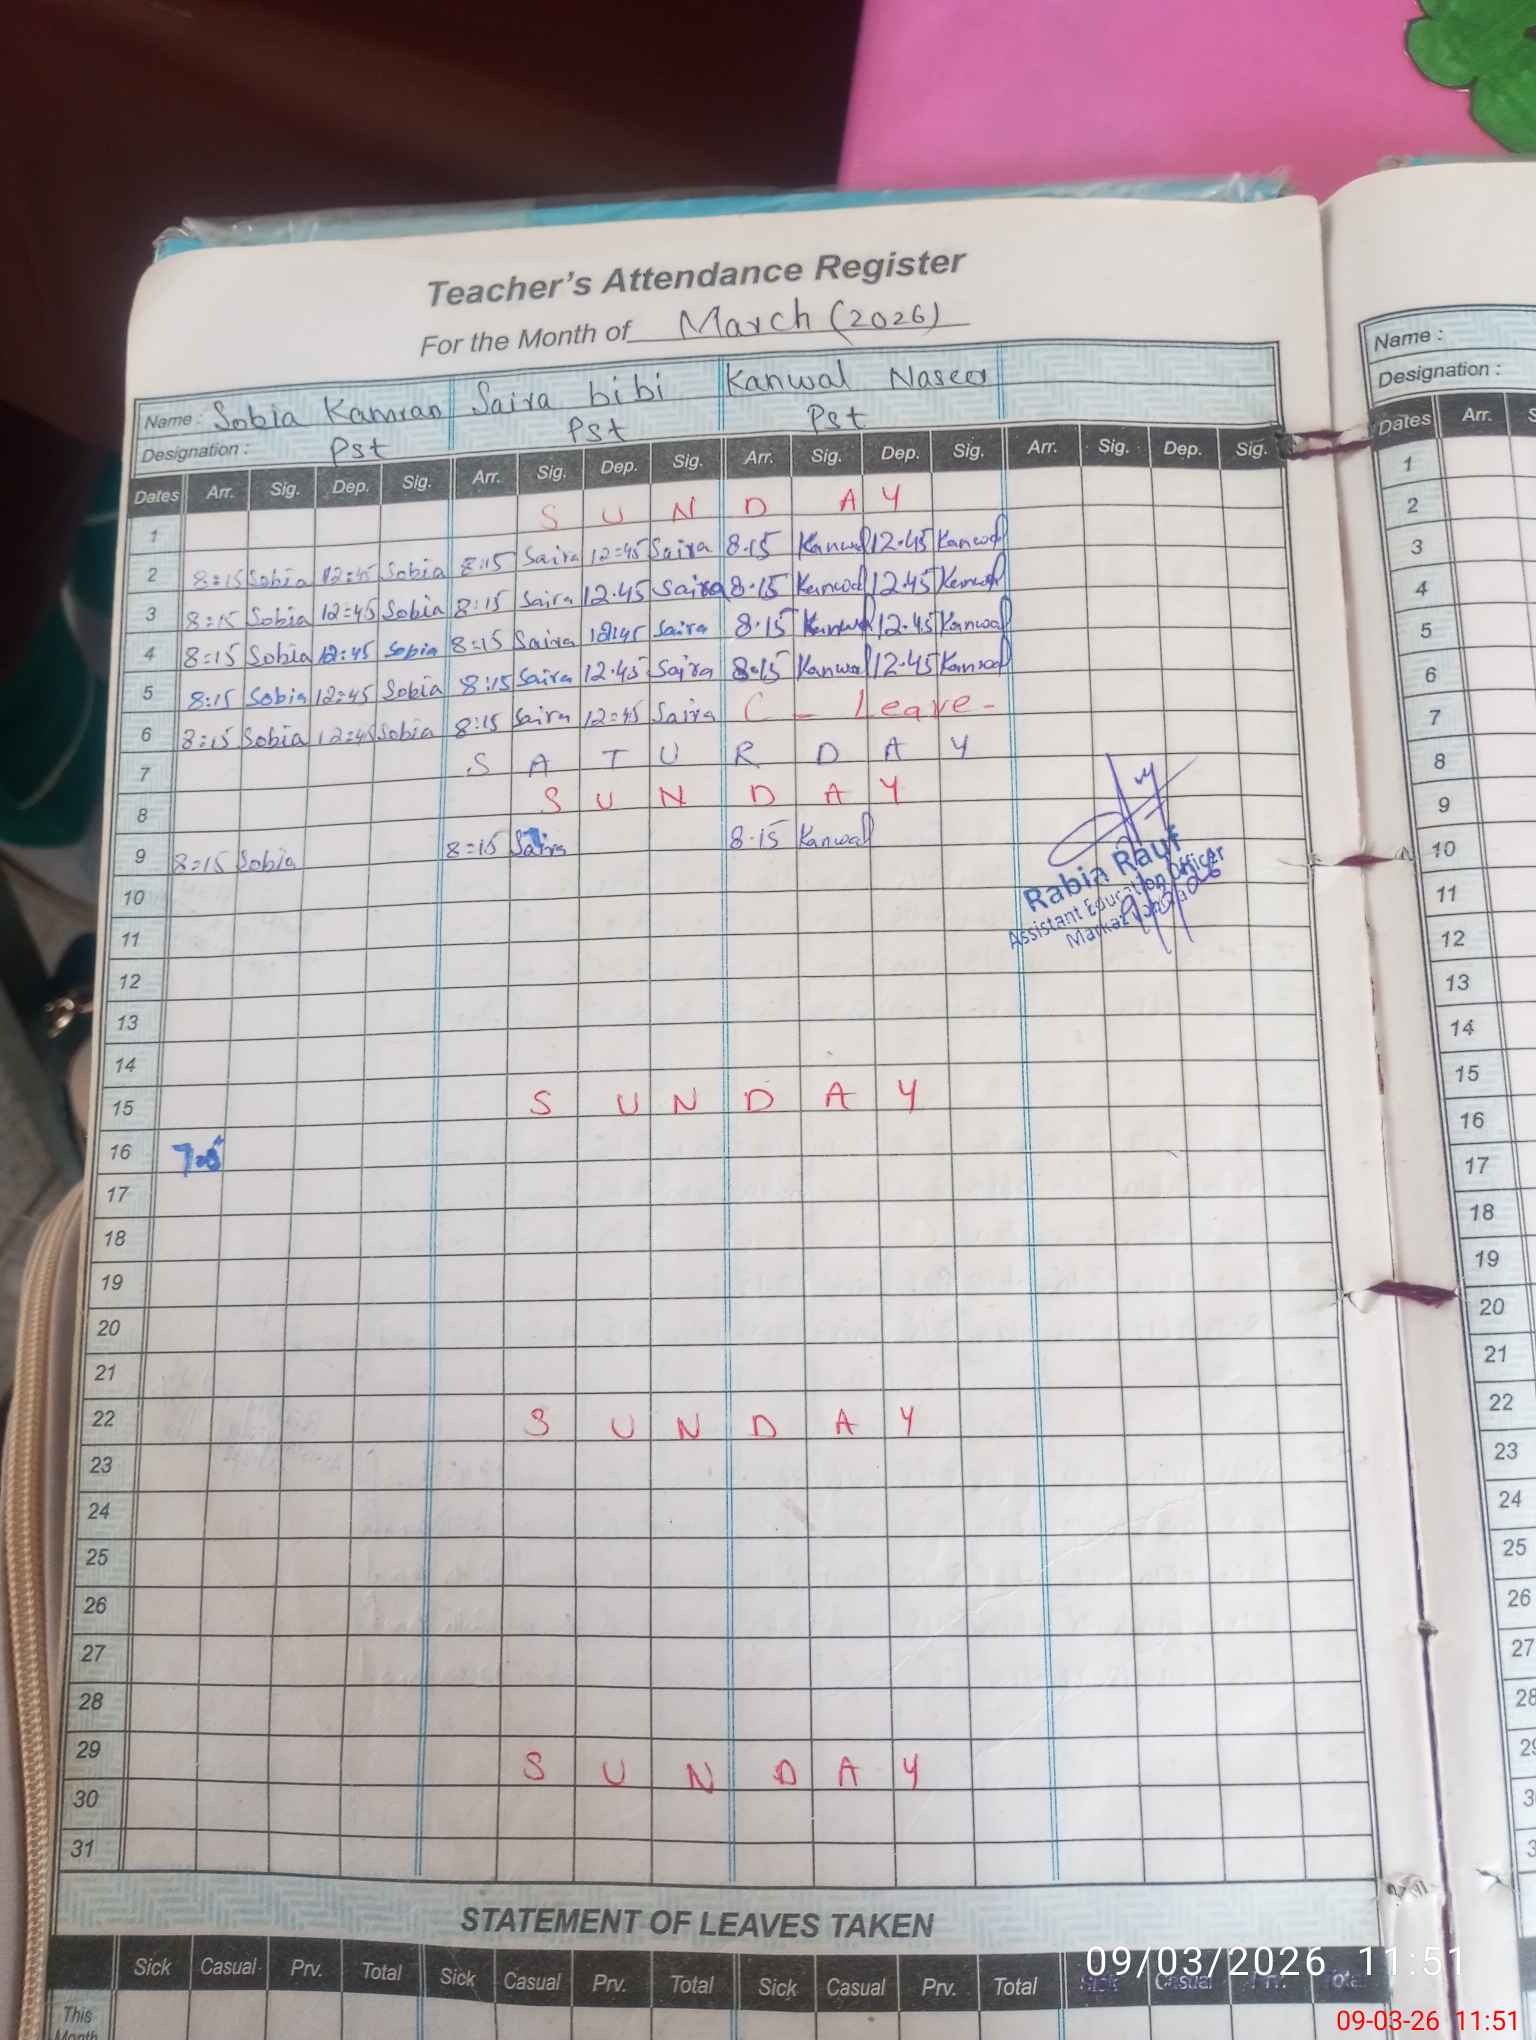 Teacher's Attendance Register
For the Month of March (2026)
Name : Sobia Kamran Saira bibi Kanwal Naseer
Designation : Pst Pst Pst
Dates Arr. Sig. Dep. Sig. Arr. Sig. Dep. Sig. Arr. Sig. Dep. Sig. Arr. Sig. Dep. Sig.
1 S U N D A Y
2 8:15 Sobia 12:45 Sobia 8:15 Saira 12:45 Saira 8.15 Kanwal 12.45 Kanwal
3 8:15 Sobia 12:45 Sobia 8:15 Saira 12.45 Saira 8.15 Kanwal 12.45 Kanwal
4 8:15 Sobia 12:45 Sobia 8:15 Saira 12:45 Saira 8.15 Kanwal 12.45 Kanwal
5 8:15 Sobia 12:45 Sobia 8:15 Saira 12.45 Saira 8.15 Kanwal 12.45 Kanwal
6 8:15 Sobia 12:45 Sobia 8:15 Saira 12:45 Saira C - Leave -
7 S A T U R D A Y
8 S U N D A Y
9 8:15 Sobia 8:15 Saira 8.15 Kanwal
Rabia Rauf
Assistant Education Officer
Markaz
9/3/2026
10
11
12
13
14
15 S U N D A Y
16
17
18
19
20
21
22 S U N D A Y
23
24
25
26
27
28
29 S U N D A Y
30
31
STATEMENT OF LEAVES TAKEN
Sick Casual Prv. Total Sick Casual Prv. Total Sick Casual Prv. Total Sick Casual Prv. Total
This
Month
Name :
Designation :
Dates Arr.
1
2
3
4
5
6
7
8
9
10
11
12
13
14
15
16
17
18
19
20
21
22
23
24
25
26
27
28
09/03/2026 11:51
09-03-26 11:51